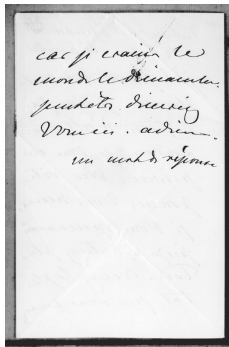 car je crains le
monde le dimanche.
peut être
 ici. adieu.
un mot de réponse